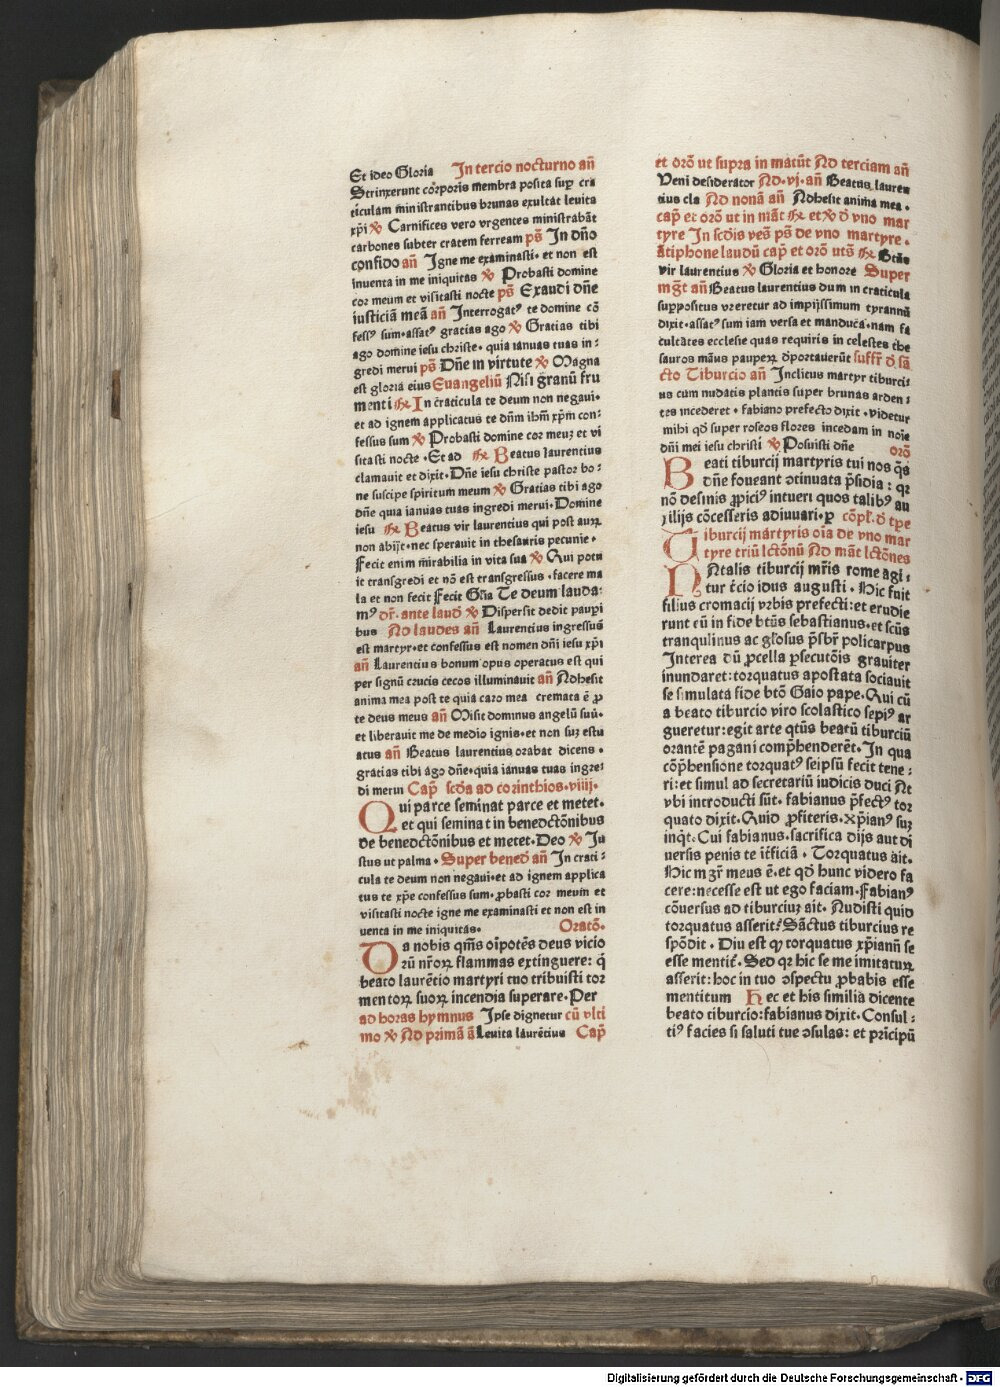 Et ideo Gloria In tercio nocturno añ
Strinxerunt corporis membra posita suꝑ cra
ticulam ministrantibus brunas exultat leuita
xp̄i ℣ Carnifices vero vrgentes ministrabāt
carbones subter cratem ferream ps̄ In dn̄o
confido añ Igne me examinasti· et non est
inuenta in me iniquitas ℣ Probasti domine
cor meum et visitasti nocte ps̄ Exaudi dn̄e
iusticiā meā añ Interrogatꝰ te domine cō
fessꝰ sum·assatꝰ gratias ago ℣ Gratias tibi
ago domine iesu christe· quia ianuas tuas in-
gredi merui ps̄ Dn̄e in virtute ℣ Magna
est gloria eius Euangeliū Nisi granū fru
menti ℟ In craticula te deum non negaui·
et ad ignem applicatus te dn̄m ihm̄ xp̄m con-
fessus sum ℣ Probasti domine cor meuꝫ et vi
sitasti nocte ·Et ad ℟ Beatus laurentius
clamauit et dixit· Dn̄e iesu christe pastor bo-
ne suscipe spiritum meum ℣ Gratias tibi ago
dn̄e quia ianuas tuas ingredi merui· Domine
iesu ℟ Beatus vir laurentius qui post auꝝ
non abijt·nec sperauit in thesauris pecunie·
Fecit enim mirabilia in vita sua ℣ Qui potu
it transgredi et nō est transgressus ·facere ma
la et non fecit Fecit Glīa Te deum lauda-
mꝰ v̄r·ante laud̄ ℣ Dispersit dedit pauꝑi
bus Ad laudes añ Laurentius ingressus
est martyr·et confessus est nomen dn̄i iesu xp̄i
añ Laurentius bonum opus operatus est qui
per signū crucis cecos illuminauit añ Adhesit
anima mea post te quia caro mea cremata ē ꝓ
te deus meus añ Misit dominus angelū suū·
et liberauit me de medio ignis·et non suꝫ estu
atus añ Beatus laurentius orabat dicens·
gratias tibi ago dn̄e·quia ianuas tuas ingre-
di merui Cap̄ scd̄a ad corinthios·viiij·
Qui parce seminat parce et metet·
et qui seminat in benedctōnibus
de benedctōnibus et metet·Deo ℣ Iu
stus ut palma· Super bened̄ añ In crati-
cula te deum non negaui·et ad ignem applica
tus te xp̄e confessus sum·ꝓbasti cor meum et
visitasti nocte igne me examinasti et non est in
uenta in me iniquitas· Oratō·
Da nobis qm̄s oīpotēs deus vicio
rū nr̄oꝝ flammas extinguere: q̄
beato laurētio martyri tuo tribuisti tor
mentoꝝ suoꝝ incendia superare·Per
ad horas hymnus Ipse dignetur cū vlti
mo ℣ Ad primā ā Leuita laurētius Cap̄
et orō ut supra in matūt Ad terciam añ
Veni desiderator Ad·vj·añ Beatus lauren
tius cla Ad nonā añ Adhesit anima mea·
cap̄ et orō ut in māt ℟ et ℣ d̄ vno mar
tyre In scd̄is ves̄ ps̄ de vno martyre·
ātiphone laudū cap̄ et orō uts̄ ℟ Btūs
vir laurentius ℣ Gloria et honore Super
mg̅t añ Beatus laurentius dum in craticula
suppositus vreretur ad impijssimum tyrannū
dixit·assatꝰ sum iam versa et manduca·nam fa
cultates ecclesie quas requiris in celestes the
sauros manus pauperꝝ d̄portauerūt suffr̄ d̄ sā
cto Tiburcio añ Inclitus martyr tiburci-
us cum nudatis plantis super brunas arden-
tes incederet · fabiano prefecto dixit ·videtur
mihi qd̄ super roseos flores incedam in noīe
dn̄i mei iesu christi ℣ Posuisti dn̄e orō
Beati tiburcij martyris tui nos q̄s
dn̄e foueant ↄtinuata p̄sidia: qꝛ
nō desinis ꝓpiciꝰ intueri quos talibꝰ au
xilijs cōcesseris adiuuari·ꝑ
Tiburcij martyris oīa de vno mar
tyre triū lctōnū Ad māt lctōnes
Natalis tiburcij mr̄is rome agi-
tur t̄cio idus augusti· Hic fuit
filius cromacij vrbis prefecti:et erudie
runt eū in fide btūs sebastianus·et scūs
tranqulinus ac gl̄osus p̄sbr̄ policarpus
Interea dū ꝓcella ꝑsecutōis grauiter
inundaret:torquatus apostata sociauit
se simulata fide btō Gaio pape·Qui cū
a beato tiburcio viro scolastico sepiꝰ ar
gueretur:egit arte qtūs beatū tiburciū
orantē pagani comp̄henderēt·In qua
cōp̄hensione torquatꝰ seipsū fecit tene-
ri:et simul ad secretariū iudicis duci At
vbi introducti sūt· fabianus p̄fectꝰ tor
quato dixit·Quid ꝓfiteris·Xp̄ianꝰ suꝫ
inqt·Cui fabianus·sacrifica dijs aut di
uersis penis te īt̄ficiā · Torquatus ait·
Hic mgr̄ meus ē·et qd̄ hunc videro fa
cere:necesse est ut ego faciam·Fabianꝰ
cōuersus ad tiburciuꝫ ait· Audisti quid
torquatus asserit: Sāctus tiburcius re
spōdit· Diu est qꝫ torquatus xp̄iannū se
esse mentit̄·Sed qꝛ hic se me imitatuꝝ
asserit:hoc in tuo ↄspectu ꝓbabis esse
mentitum Hec et his similia dicente
beato tiburcio:fabianus dixit·Consul-
tiꝰ facies si saluti tue ↄsulas: et prīcipū
Digitalisierung gefördert durch die Deutsche Forschungsgemeinschaft - DFG